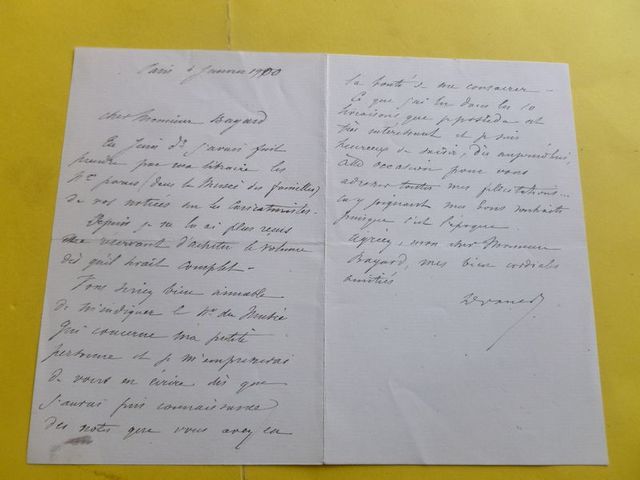 Paris 6 Janvier 1900
cher Monsieur Bayard
En Juin dr j'avais fait
prendre par ma libraire les
Nos parus (dans le Musée des familles)
de vos notices sur les Caricaturistes.
Depuis je ne les ai plus reçus
me réservant d'acheter le volume
dès qu'il serait complet -
Vous seriez bien aimable
de m'indiquer le No du Musée
qui concerne ma petite
personne et je m'empresserai
de vous en écrire dès que
j'aurai pris connaissance
des notes que vous avez eu
la bonté de me consacrer -
Ce que j'ai lu dans les 10
livraisons que je possède est
très intéressant et je suis
heureux de saisir, dès aujourd'hui,
occasion pour vous
adresser toutes mes félicitations...
en y joignant mes bons souhaits
puisque c'est l'époque.
Agréez, mon cher Monsieur
Bayard, mes bien cordiales
amitiés